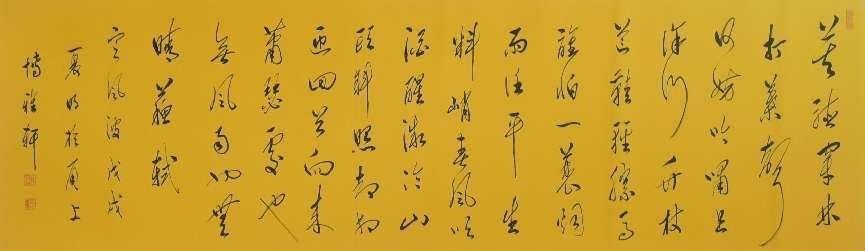 莫聽穿林
打葉聲
何妨吟嘯且
徐行竹杖
芒鞋輕勝馬
誰怕一蓑烟
雨任平生
料峭春風吹
酒醒微冷山
頭斜照却相
迎回首向来
蕭瑟處也
無風雨也無
晴蘇軾
定風波戊戌
夏於甬上
博雅軒